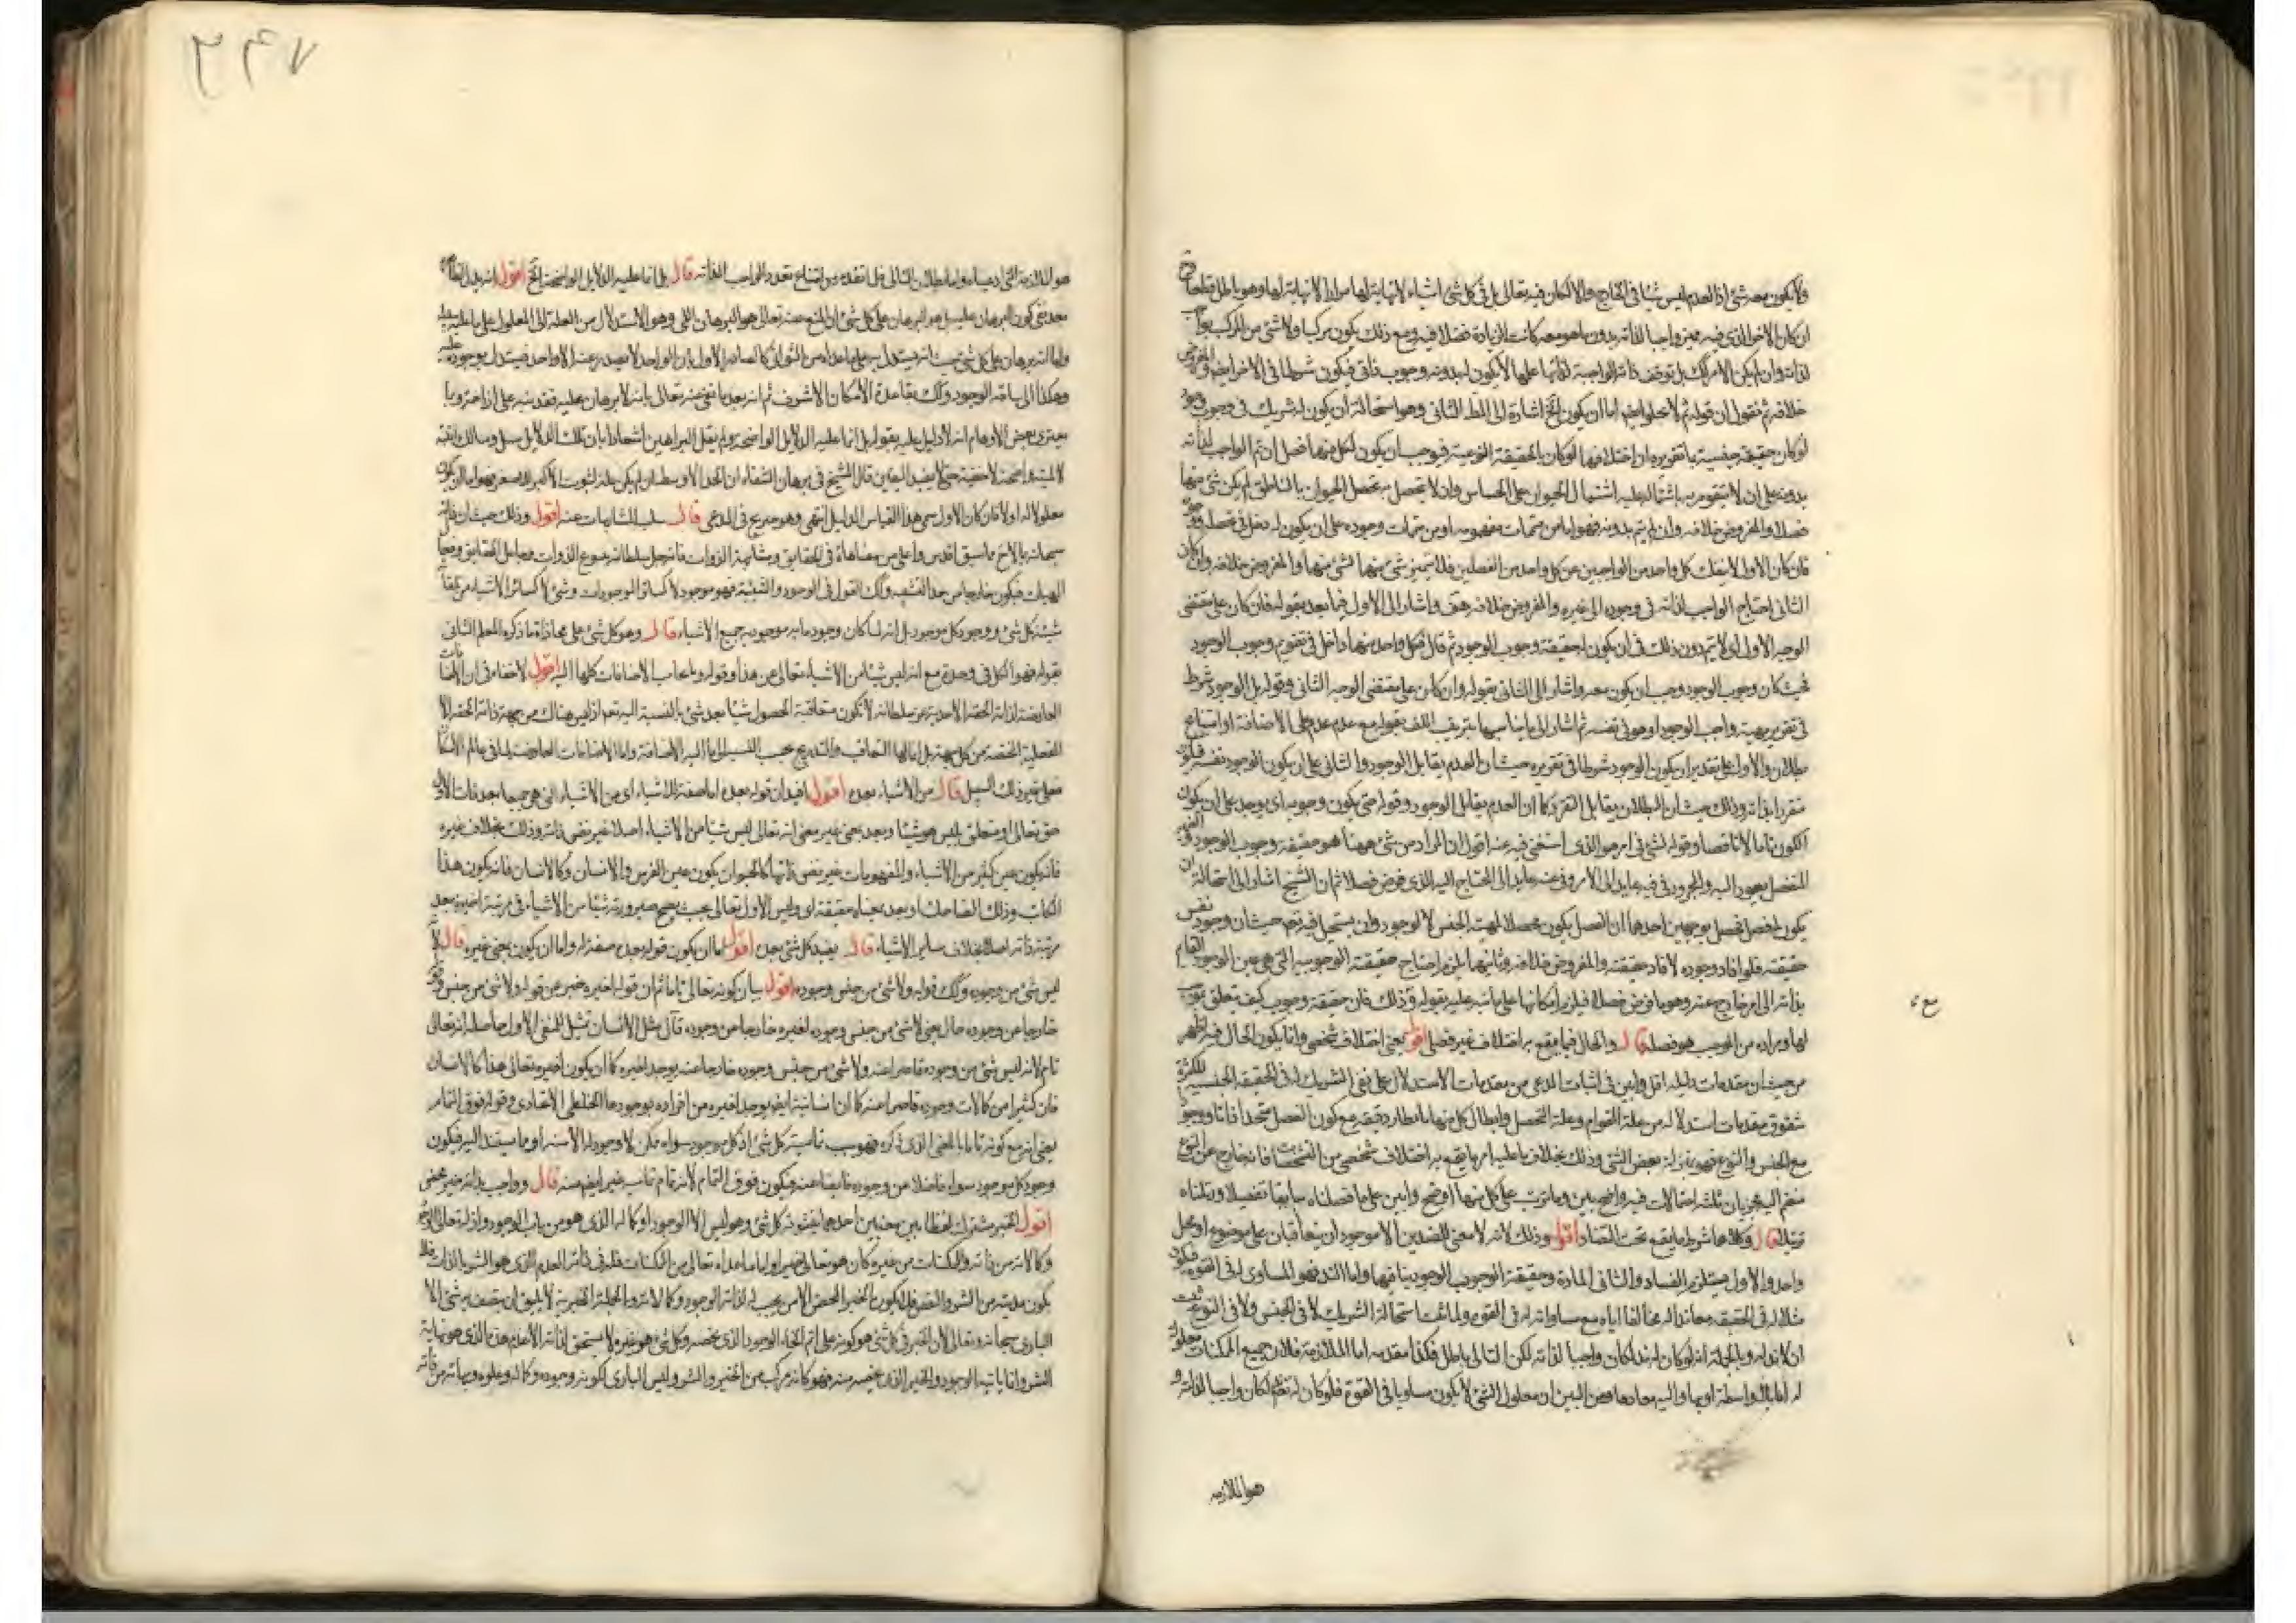 ولا يكون معه شئ اذ العدم ليس شيئا في الخارج والا لكان فيه تعالى بل في كل شئ اشياء لا نهاية لها مرارا لا نهاية لها وهو باطل قطعا
ان كان الاخر الذي فيه مميز واجبا لذاته بدون ما هو معه كانت الزيادة فضلا فيه ومع ذلك يكون مركبا ولا شئ من المركب بواجب
لذاته وان لم يكن الامر كك بل توقف ذاته الواجبة لذاتها عليها لا يكون لبدونه وجوب ذاتي فيكون شرطا في الاخر ايضا والمفروض
خلافه ثم نقول ان قوله ثم لا يخلو ايضا اما ان يكون الخ اشارة الى المط الثاني وهو استحالة ان يكون له شريك في وجوب وجود
لو كان حقيقة جنسية ما تقريره ان اختلافهما لو كان بالحقيقة النوعية فيوجب ان يكون لكل منهما فصل ان تم الواجب لذاته
بدونه على ان لا يتقوم به باشتماله عليه اشتمال الحيوان على الحساس وان لا يتحصل به تحصل الحيوان بالناطق لم يكن شئ منهما
فصلا والمفروض خلافه وان لم يتم بدونه فهو اما من متممات مفهومه او من متممات وجوده على ان يكون له دخل في تحصله
فان كان الاول لا ينفك كل واحد من الواجبين عن كل واحد من الفصلين فلا يتميز شئ منهما لشئ منهما والمفروض خلافه وان كان
الثاني احتاج الواجب لذاته في وجوده الى غيره والمفروض خلافه هف واشار الى الاول فيما بعد بقوله فان كان على مقتضى
الوجه الاول اي لا يتم دون ذلك في ان يكون له حقيقة وجوب الوجود ثم قال فكل واحد منهما داخل في تقويم وجوب الوجود
فحيث كان وجوب الوجود وجب ان يكون معه واشار الى الثاني بقوله وان كان على مقتضى الوجه الثاني وقوله بل الوجود شرط
في تقرير مهية واجب الوجود او هو في نفسه ثم اشار الى ما يناسبها بتزييف اللف بقوله مع عدم عدم على الاضافة او امتناع
بطلان والاول على تقدير ان يكون الوجود شرطا في تقريره حيث ان العدم يقابل الوجود والثاني على ان يكون الوجود نفسه فيكون
متقررا بذاته وذلك حيث ان البطلان يقابل التقرر كما ان العدم يقابل الوجود وقوله حتى يكون وجوبه اي يوجد على ان يكون
الكون تاما لا ناقصا وقوله لشئ في امر هو الذي استغنى فيه عنه اقول ان المراد من شئ ههنا هو حقيقة وجوب الوجود
المنفصل يعود اليه والمجرور في فيه عايد الى الامر وفي عنه عايد الى المحتاج اليه الذي فرض فصلا ثم ان الشيخ اشار الى استحالة ان
يكون له فصل محصل بوجهين احدهما ان الفصل يكون محصلا لمهية الجنس لا لوجوده وان يستحيل فيه تعم حيث ان وجوده نفس
حقيقته فلو افاد وجوده لافاد حقيقته والمفروض خلافه وثانيهما يلزم احتياج حقيقته الوجوبية التي هي عين الوجود القائم
بذاته الى امر خارج عنه وهو ما فرض فصلا فيلزم امكانها على ما نبه عليه بقوله وذلك فان حقيقة وجوب كيف يتعلق بموجب
لها ومراده من الموجب هو فصله قال والحال فيما يقع به اختلاف غير فصلي اقول يعني اختلاف شخصي وانما يكون الحال فيه اظهر
من حيث ان مقدمات دليله اقل وابين في اثبات المدعى من مقدمات الاستدلال على نفي الشريك له في الحقيقة الجنسية لكثرة
شقوق مقدمات استدلاله من علة القوام وعلة التحصل وابطال كل منهما بانظار دقيقة مع كون الفصل متحدا ذاتا ووجودا
مع الجنس والنوع فهو بمنزلة بعض الشئ وذلك بخلاف ما عليه امر ما يقع به اختلاف شخصي من المشخصات فانه خارج عن النوع
منضم اليه جريان ثلثة احتمالات فيه واضح بين وما يترتب على كل منها اوضح وابين على ما فصلناه سابقا تفصيلا وتلناه
تزييلا قال وكلاهما شرط ما يقع تحت التضاد اقول وذلك لانه لا معنى للضدين الا موجودان يتعاقبان على موضوع او محل
واحد والاول مستلزم الفساد والثاني المادة وحقيقة الوجوب الوجود ينافيها واما الند فهو المساوي له في القوة فيكون
مثلا له في الحقيقة معاندا له مخالفا اياه مع مساواته له في القوة ولما ثبت استحالة الشريك لا في الجنس ولا في النوع ثبت
ان لا ند له وبالجملة انه لو كان له ند لكان واجبا لذاته لكن التالي باطل فكذا مقدمه اما الملازمة فلان جميع الممكنات معلولة
له اما بلا واسطة او بها واليه معادها ومن البين ان معلول الشئ لا يكون مساويا في القوة فلو كان له ند لكان واجبا لذاته و
هو الملازمة
هو الملازمة التي ادعيناه واما بطلان التالي فلما تقدم من امتناع تعدد الواجب لذاته قال بل انما عليه الدلايل الواضحة الخ اقول انه يدل
بعد نفي كون البرهان عليه بل هو البرهان على كل شئ ان المنع عنه تعالى هو البرهان اللمي وهو الاستدلال من العلة الى المعلول على ما عليه
واما انه برهان على كل شئ حيث انه يستدل به على ما عداه من الثواني كالصادر الاول بان الواحد لا يصدر عنه الا واحد فيستدل بوجوده عليه
وهكذا الى ساقة الوجود وكك بقاعدة الامكان الاشرف ثم انه بعد ما نفى عنه تعالى بانه لا برهان عليه فقد نبه على ازاحة ربما
يعتري بعض الاوهام انه لا دليل عليه بقوله بل انما عليه الدلايل الواضحة ولم يقل البراهين اشعارا بان تلك الدلايل سبل ومسالك انية
لا لمية واضحة لا خفية حتى لا يفيد اليقين قال الشيخ في برهان الشفاء ان الحد الاوسط ان لم يكن علة لثبوت الاكبر للاصغر فهو اما ان يكون
معلولا له او لا فان كان الاول سمي هذا القياس الدليل انتهى وهو صريح في المدعى قال سلب المشابهات عنه اقول وذلك حيث ان ذاته
سبحانه بالاخ ما سبق اقدس واعلى من مضاهاة في الحقايق ومشابهة الذوات فانه جل سلطانه ينبوع الذوات وجاعل الحقايق
المهيات فيكون خارجا من حد التشبيه وكك القول في الوجود والشيئية فهو موجود لا كسائر الموجودات وشئ لا كسائر الاشياء
شيئة كل شئ ووجود كل موجود بل انه لما كان وجود ما به موجودية جميع الاشياء قال وهو كل شئ على محاذاة ما ذكره المعلم الثاني
بقوله فهو الكل في وحدة مع انه ليس شيئا من الاشياء تعالى عن هذا وقوله وما يعاب الاضافات كلها اليه اقول لا خفاء في ان الاضافات
العارضة لذاته الحقة الاحدية عز سلطانه لا يكون متعاقبة الحصول شيئا بعد شئ بالنسبة اليه تعم اذ ليس هناك من جهة ذاته الحقة الا
الفعلية المحضة من كل جهة بل انما لها التعاقب والتدريج بحسب القياس الى ما اليه الاضافة واما الاضافات العارضة لما في عالم الامكان
فعلى غير ذلك السبيل قال من الاشياء بعده اقول افيد ان قوله بعده اما صفة للاشياء اي من الاشياء التي هو جميعا بعد ذات الاول
حق تعالى او متعلق بليس هو شيئا وبعد بمعنى غير بمعنى انه تعالى ليس شيئا من الاشياء اصلا غير نفس ذاته وذلك بخلاف غيره
فانه يكون عين كثير من الاشياء والمفهومات غير نفس ذاتها كالحيوان يكون عين الفرس والانسان وكالانسان فانه يكون هذا
الكاتب وذلك الضاحك او بعد بمعناه حقيقة اي وليس الاول تعالى بحيث يصح صيرورته شيئا من الاشياء في مرتبة اخيرة بعد
مرتبة ذاته اصلا بخلاف ساير الاشياء قال يفيد كل شئ بعده اقول اما ان يكون قوله بعده صفة له واما ان يكون بمعنى غيره قال
ليس شئ من وجوده وكك قوله ولا شئ من جنس وجوده اقول بيان كونه تعالى تاما ثم ان قوله لغيره خبر عن قوله ولا شئ من جنس
خارجا عن وجوده حال يعني لا شئ من جنس وجوده لغيره خارجا من وجوده قال مثل الانسان تمثيل للمنفي الاول حاصله انه تعالى
تام لانه ليس شئ من وجوده قاصرا عنه ولا شئ من جنس وجوده خارجا عنه يوجد لغيره كما ان يكون لغيره تعالى هذا كالانسان
فان كثيرا من كالات وجوده قاصرا عنه كما ان انسانية ايضا يوجد لغيره من افراده بوجودها الخلطي الاتحادي وقوله فوق التمام
يعني انه مع كونه تاما بالمعنى الذي ذكره فهو يهب تمامية كل شئ اذ كل موجود سواه ممكن لا وجود له الا منه او مما يستند اليه فيكون
وجود كل موجود سواه فاضلا من وجوده فايضا عنه فيكون فوق التمام لانه تمام تمامية غيره ايضا منه قال وواجب بذاته خير محض
اقول الخير مشترك لفظا بين معنيين احدهما يتشوقه كل شئ وهو ليس الا الوجود او كماله الذي هو من باب الوجود واذ له تعالى
وكالاته من ذاته والممكنات من غيره كان هو تعالى خيرا واما ما عداه تعالى من الممكنات فله في ذاته العدم الذي هو الشر بالذات فلا
يكون مبدئية من الشر والنقص فلا يكون بالخير المحض الا من يجب له لذاته الوجود وكالاته وبالجملة الخيرية لا يليق ان يتصف به شئ الا
الباري سبحانه وتعالى لان الخير في كل شئ هو كونه على اتم انحاء الوجود الذي يخصه وكل شئ هو غيره لا يستحق لذاته الا العدم هذا الذي هو نهاية
الشر وانما ياتيه الوجود والخير الذي يخصه منه فهو كانه مركب من الخير والشر وليس الباري لكونه وجوده وكماله وعلوه وبهائه من ذاته